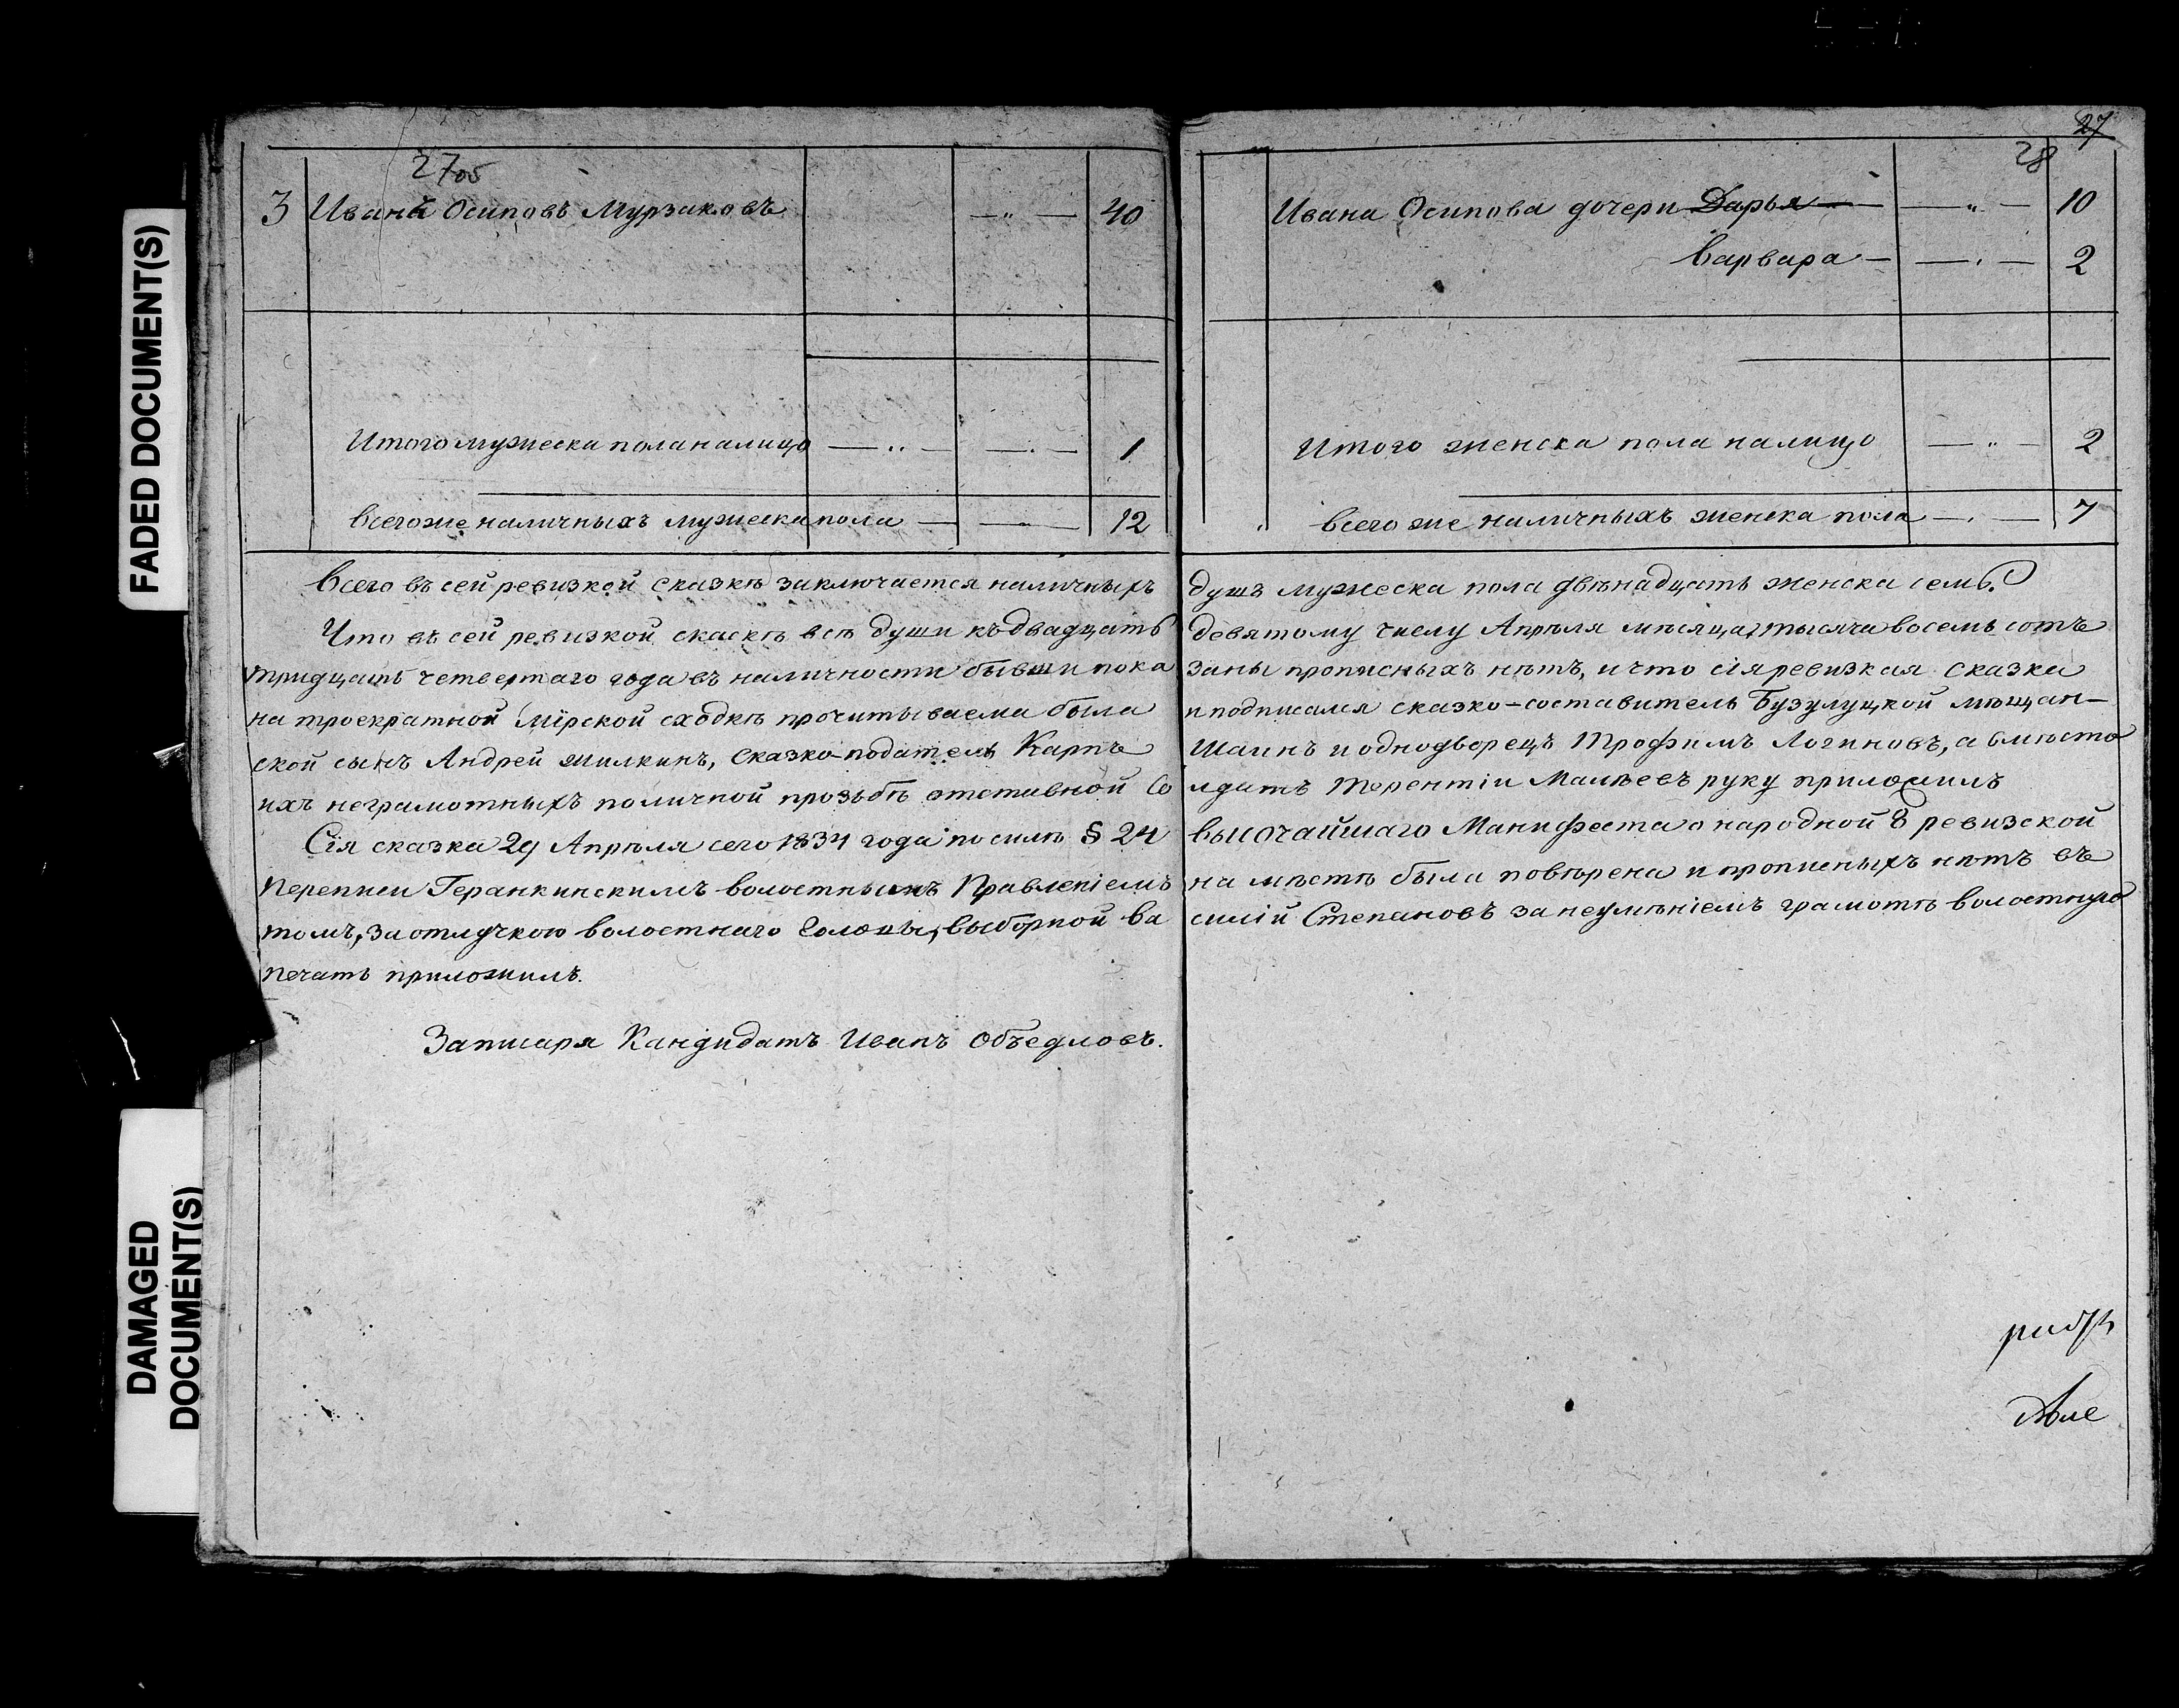 FADED DOCUMENT(S)
DAMAGED DOCUMENT(S)
27об
3 Иванъ Осиповъ Мурзаковъ — „ — 40
Итого мужеска пола налицо — „ — — „ — 1
Всего же наличныхъ мужеска пола — — „ — 12
Всего въ сей ревизкой сказкѣ заключается наличныхъ
Что въ сей ревизкой скаскѣ всѣ души къ двадцать
тридцать четвертаго года въ наличности бывши пока
на троекратной мїрской сходкѣ прочитываема была
ской сынъ Андрей Жилкинъ, сказко-податель Карпъ
ихъ неграмотныхъ по личной прозьбѣ отставной Со
Сія сказка 29 Апрѣля сего 1834 года по силѣ § 24
Переписи Геранкинскимъ волостнымъ Правленіемъ
томъ, за отлучкою волостнаго Головы, выборной Ва
печать приложилъ.
Записаря Кандидатъ Иванъ Объедловъ.
27
28
Ивана Осипова дочери Дарья — — „ — 10
Варвара — — „ — 2
Итого женска пола налицо — „ — 2
Всего же наличныхъ женска пола — „ — 7
душъ мужеска пола двѣнадцать женска семь.
девятому числу Апрѣля мѣсяца, тысяча восемь сотъ
заны прописныхъ нѣтъ, и что сія ревизкая сказка
и подписался сказко-составитель Бузулуцкой мѣщан-
Шаинъ и однодворецъ Трофимъ Логиновъ, а вмѣсто
лдатъ Терентіи Малѣевъ руку приложилъ
высочайшаго Манифеста о народной 8 ревизской
на мѣстѣ была повѣрена и прописныхъ нѣтъ въ
силій Степановъ за неумѣніемъ грамотѣ волостную